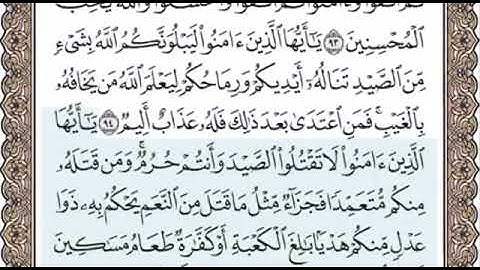 ثُمَّ ٱتَّقَوا۟ وَّءَامَنُوا۟ ثُمَّ ٱتَّقَوا۟ وَّأَحْسَنُوا۟ وَٱللَّهُ يُحِبُّ
ٱلْمُحْسِنِينَ ٩٣ يَـٰٓأَيُّهَا ٱلَّذِينَ ءَامَنُوا۟ لَيَبْلُوَنَّكُمُ ٱللَّهُ بِشَىْءٍ
مِّنَ ٱلصَّيْدِ تَنَالُهُۥٓ أَيْدِيكُمْ وَرِمَاحُكُمْ لِيَعْلَمَ ٱللَّهُ مَن يَخَافُهُۥ
بِٱلْغَيْبِ ۚ فَمَنِ ٱعْتَدَىٰ بَعْدَ ذَٰلِكَ فَلَهُۥ عَذَابٌ أَلِيمٌ ٩٤ يَـٰٓأَيُّهَا
ٱلَّذِينَ ءَامَنُوا۟ لَا تَقْتُلُوا۟ ٱلصَّيْدَ وَأَنتُمْ حُرُمٌ ۚ وَمَن قَتَلَهُۥ
مِنكُم مُّتَعَمِّدًا فَجَزَآءٌ مِّثْلُ مَا قَتَلَ مِنَ ٱلنَّعَمِ يَحْكُمُ بِهِۦ ذَوَا
عَدْلٍ مِّنكُمْ هَدْيًۢا بَـٰلِغَ ٱلْكَعْبَةِ أَوْ كَفَّـٰرَةٌ طَعَامُ مَسَـٰكِينَ